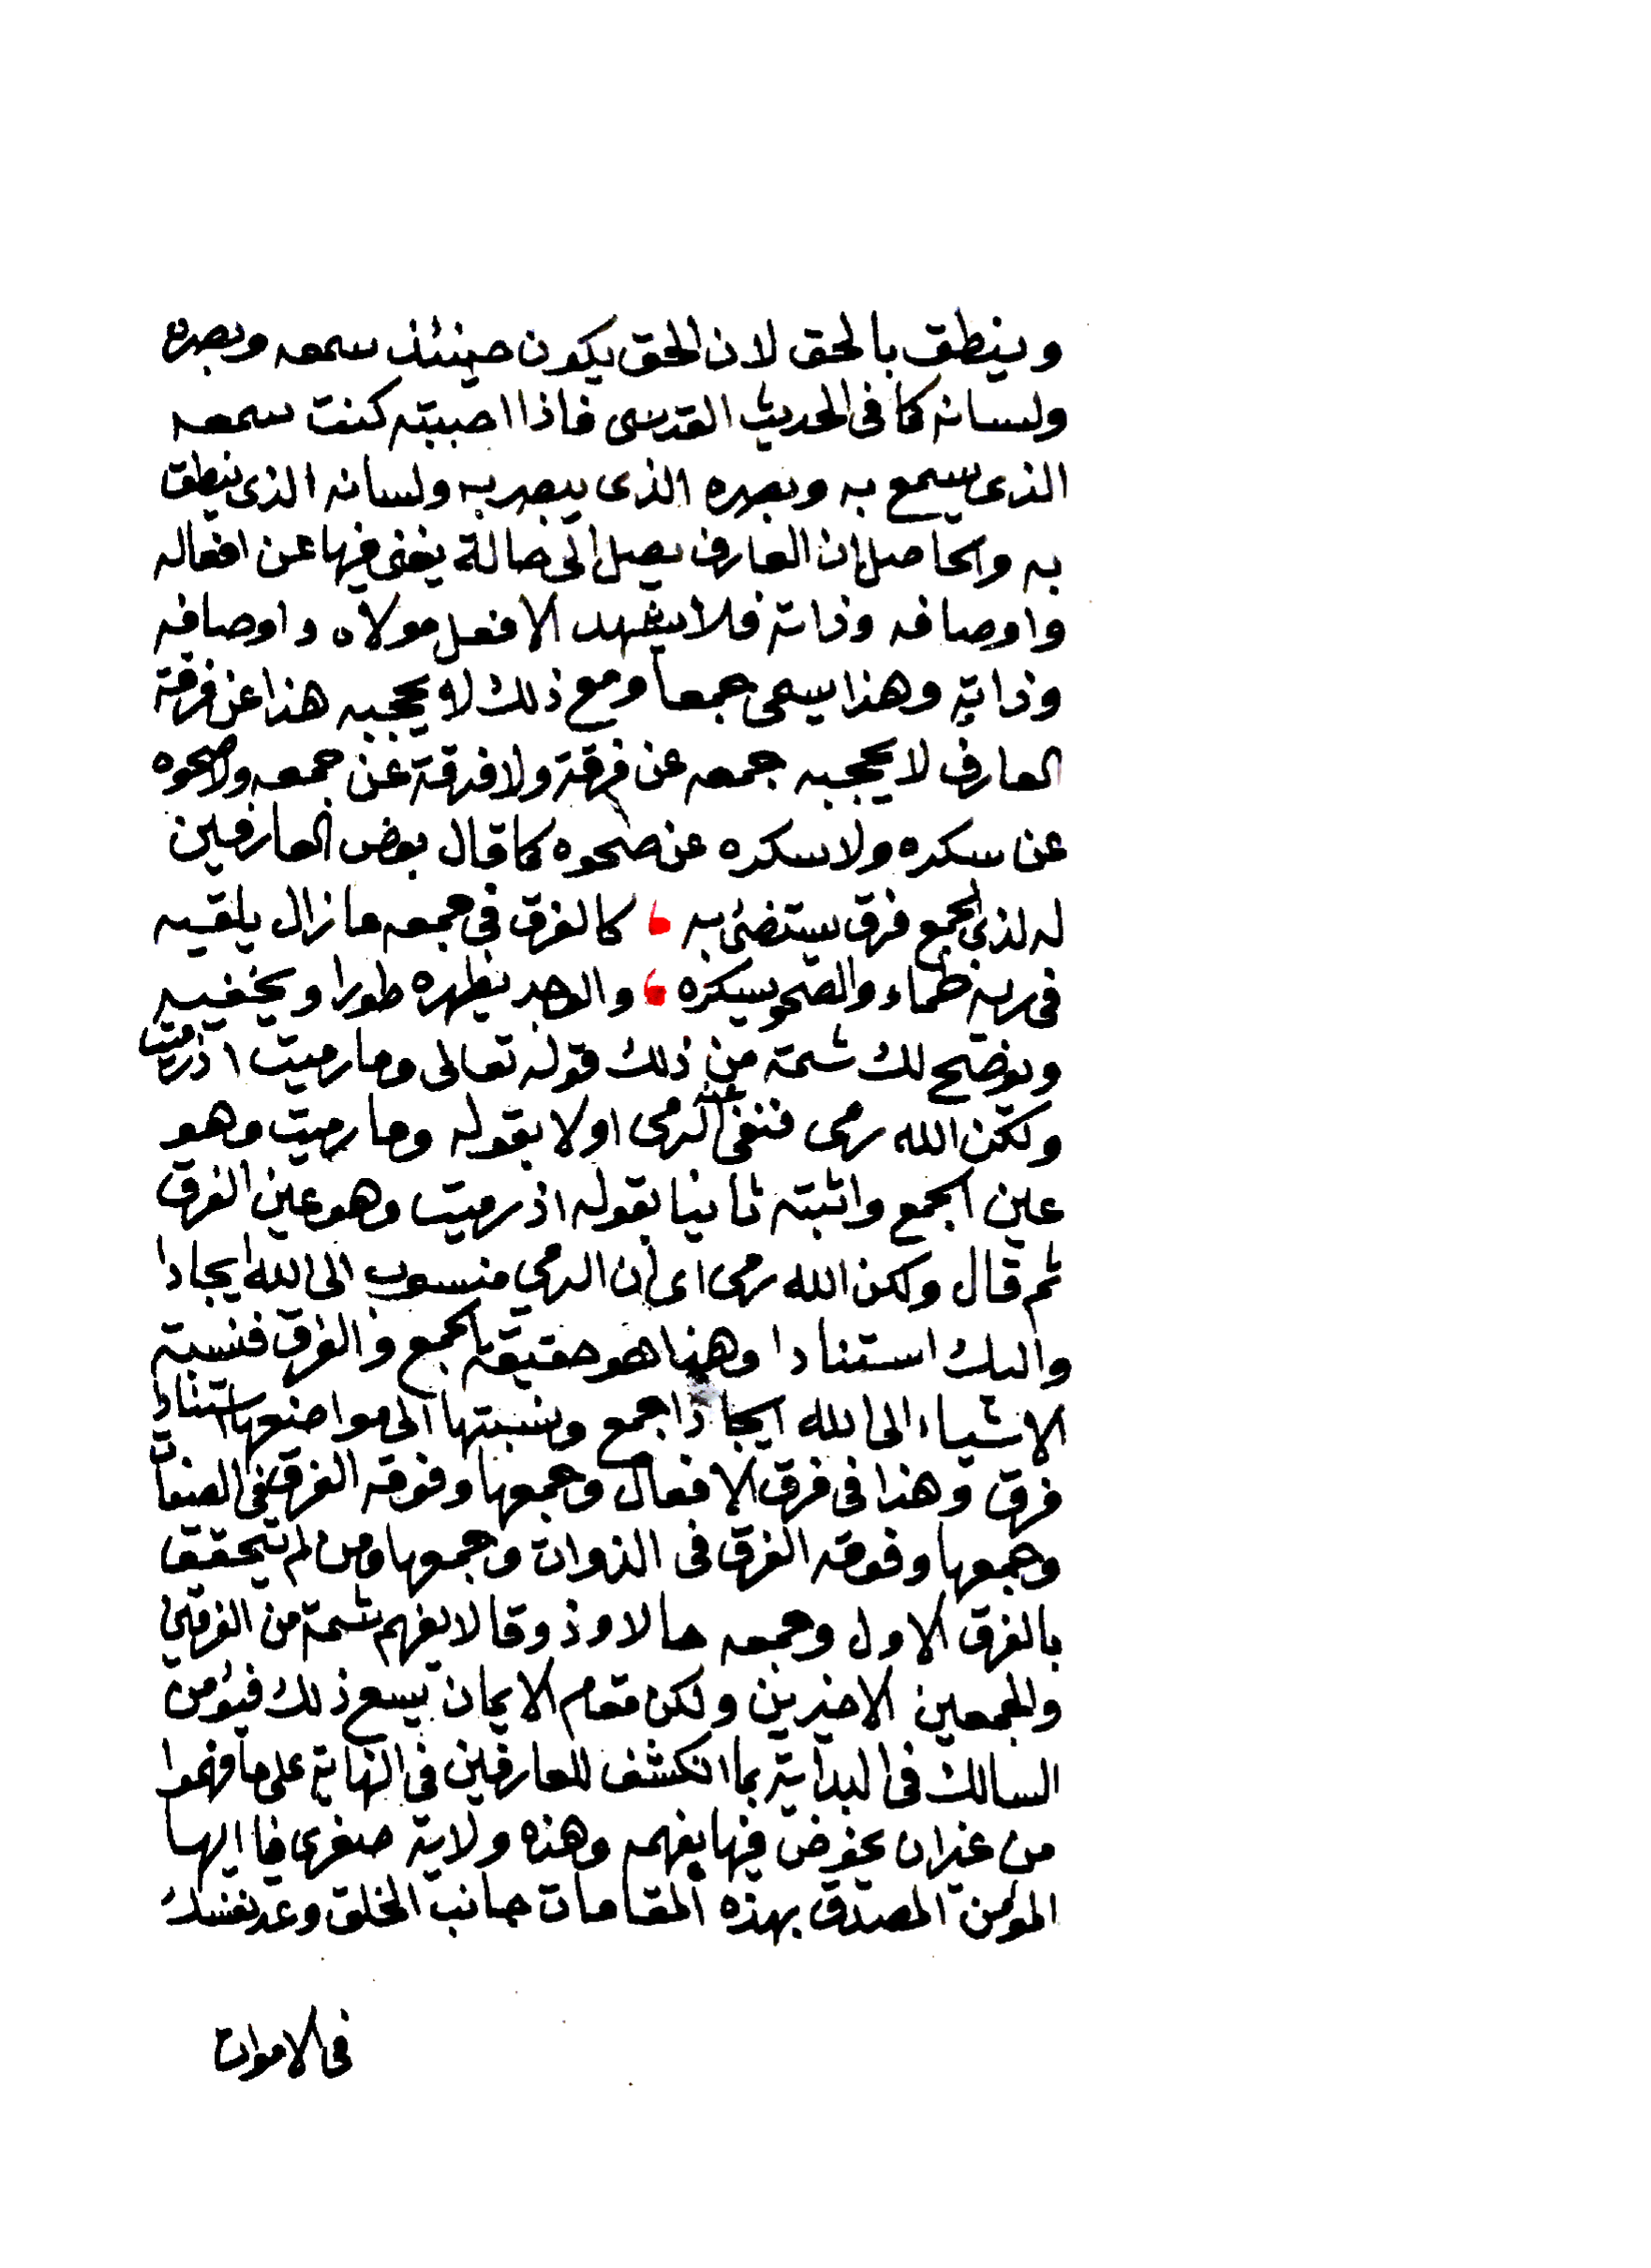 وينطق بالحق لان الحق يكون حينئذ سمعه وبصره
ولسانه كما فى الحديث القدسى فاذا احببته كنت سمعه
الذى يسمع به وبصره الذى يبصر به ولسانه الذى ينطق
به والحاصل ان العارف يصل الى حالة يفنى فيها عن افعاله
واوصافه وذاته فلا يشهد الا فعل مولاه واوصافه
وذاته وهذا يسمى جمعا ومع ذلك لا يحجبه هذا عن فرقة
العارف لا يحجبه جمعه عن فرقة ولا فرقة عن جمعه ولا صحوه
عن سكره ولا سكره عن صحوه كما قال بعض العارفين
له لذى الجمع فرق يستضئ به ، كالفرق فى جمعه مازال يلقيه
فى ريه ظماء والصحو يسكره ، والوجد يظهره طورا ويخفيه
ويوضح لك شمة من ذلك قوله تعالى وما رميت اذ رميت
ولكن الله رمى فنفى عنه الرمى اولا بقوله وما رميت وهو
عين الجمع واثبته ثانيا بقوله اذ رميت وهو عين الفرق
ثم قال ولكن الله رمى اى ان الرمي منسوب الى الله ايجادا
واليك استنادا وهذا هو حقيقة الجمع والفرق فنسبة
الاشياء الى الله ايجادا جمع ونسبتها الى مواضعها استنادا
فرق وهذا فى فرق الافعال وجمعها وفوقه الفرق فى الصفات
وجمعها وفوقه الفرق فى الذوات وجمعها ومن لم يتحقق
بالفرق الاول وجمعه حالا وذوقا لا يفهم شمة من الفرقين
والجمعين الاخيرين ولكن مقام الايمان يسع ذلك فيؤمن
السالك فى البداية بما انكشف للعارفين فى النهاية على ما فهموا
من غير ان يخوض فيها بفهمه وهذه ولاية صغرى فيا ايها
المؤمن المصدق بهذه المقامات جانب الخلق وعد نفسك
فى الاموات